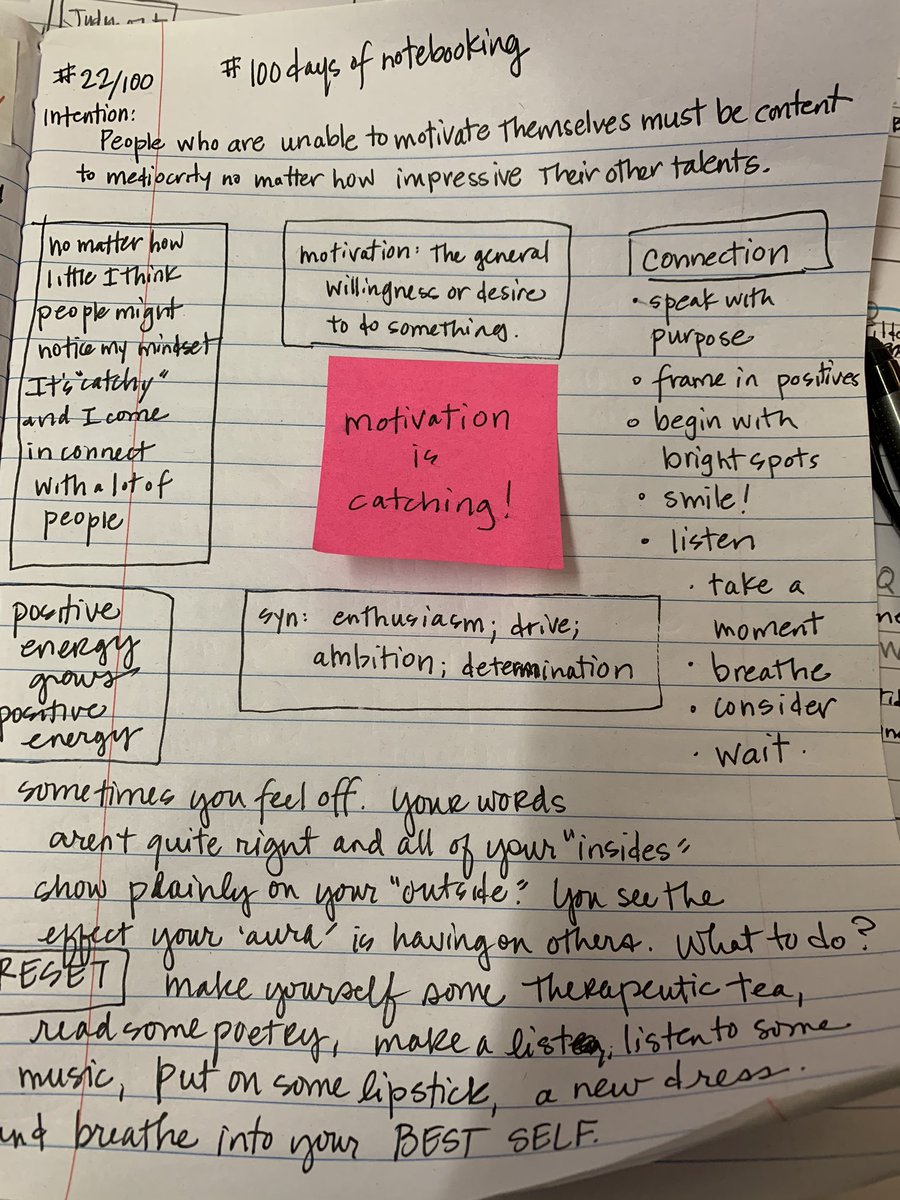 #22/100
#100days of notebooking
Intention:
People who are unable to motivate themselves must be content
to mediocrity no matter how impressive their other talents.
no matter how
little I think
people might
notice my mindset
It's "catchy"
and I come
in connect
with a lot of
people
motivation: The general
willingness or desire
to do something.
motivation
is
catching!
connection
• speak with
purpose
• frame in positives
• begin with
bright spots
• smile!
• listen
• take a
moment
• breathe
• consider
• wait.
positive
energy
grows
positive
energy
syn: enthusiasm; drive;
ambition; determination
sometimes you feel off. Your words
aren't quite right and all of your "insides"
show plainly on your "outside." You see the
effect your 'aura' is having on others. What to do?
RESET make yourself some therapeutic tea,
read some poetry, make a list, listen to some
music, put on some lipstick, a new dress.
and breathe into your BEST SELF.